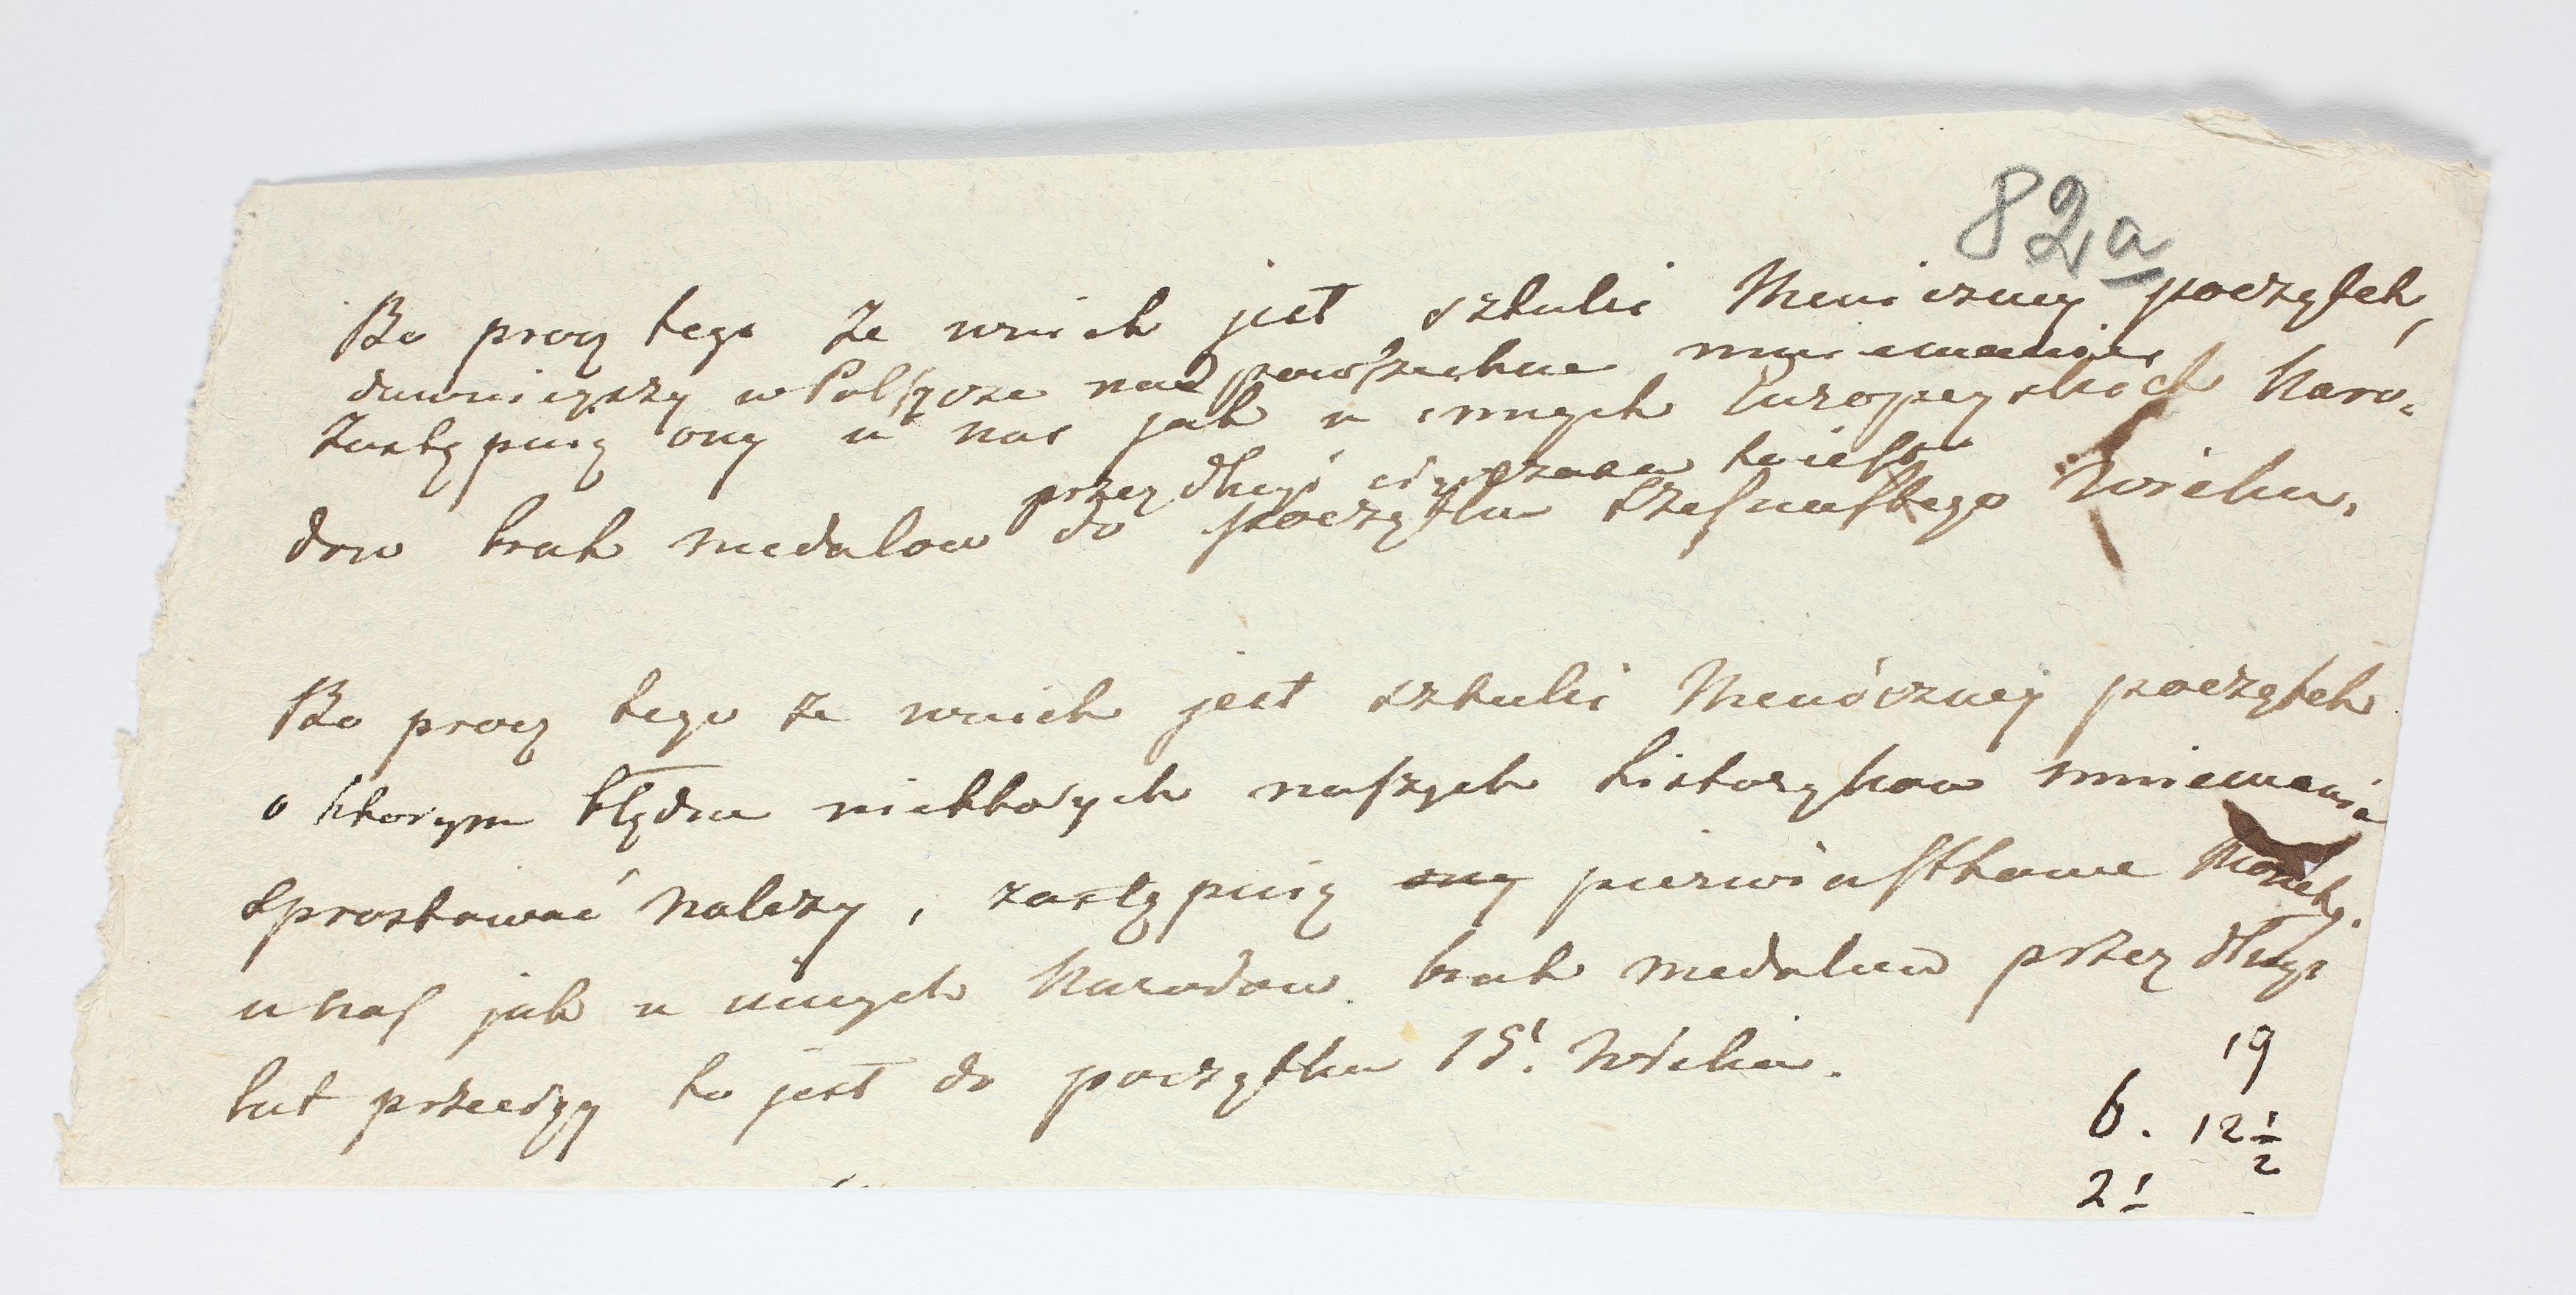 82a
Bo procz tego że wnich jest sztuki Meniczney początek,
dawnieyszy w Polszcze nad powszechne mniemanie
Zastępuią ony u nas jak u innych Europeyskich Naro-
przez długi
dow brak medalow do początku Szesnastego Wieku.
Bo procz tego że wnich jest sztuki Menniczney początek
o ktorym błędne niektorych naszych historykow mniemania
sprostować należy, zastępuią ony pierwiastkowe Monety
u nas jak u innych Narodow brak medalow przez długi
lat przeciąg to jest do początku 15. Wieku.
19
6. 12 1/2
2 1